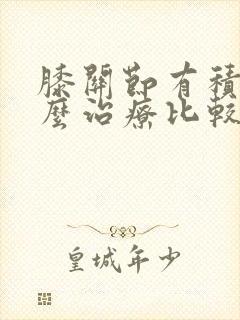 膝關節有積
麼治療比較
皇城年少